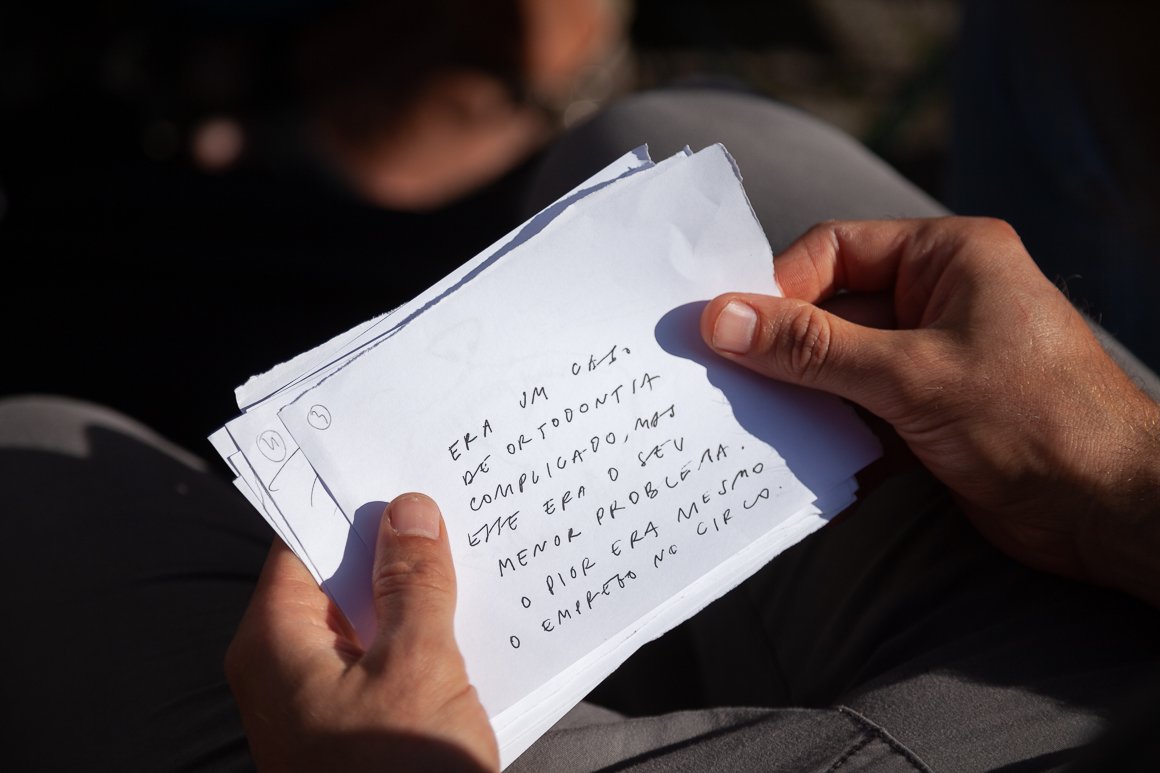 3
ERA UM CASO
DE ORTODONTIA
COMPLICADO, MAS
ESSE ERA O SEU
MENOR PROBLEMA.
O PIOR ERA MESMO
O EMPREGO NO CIRCO.